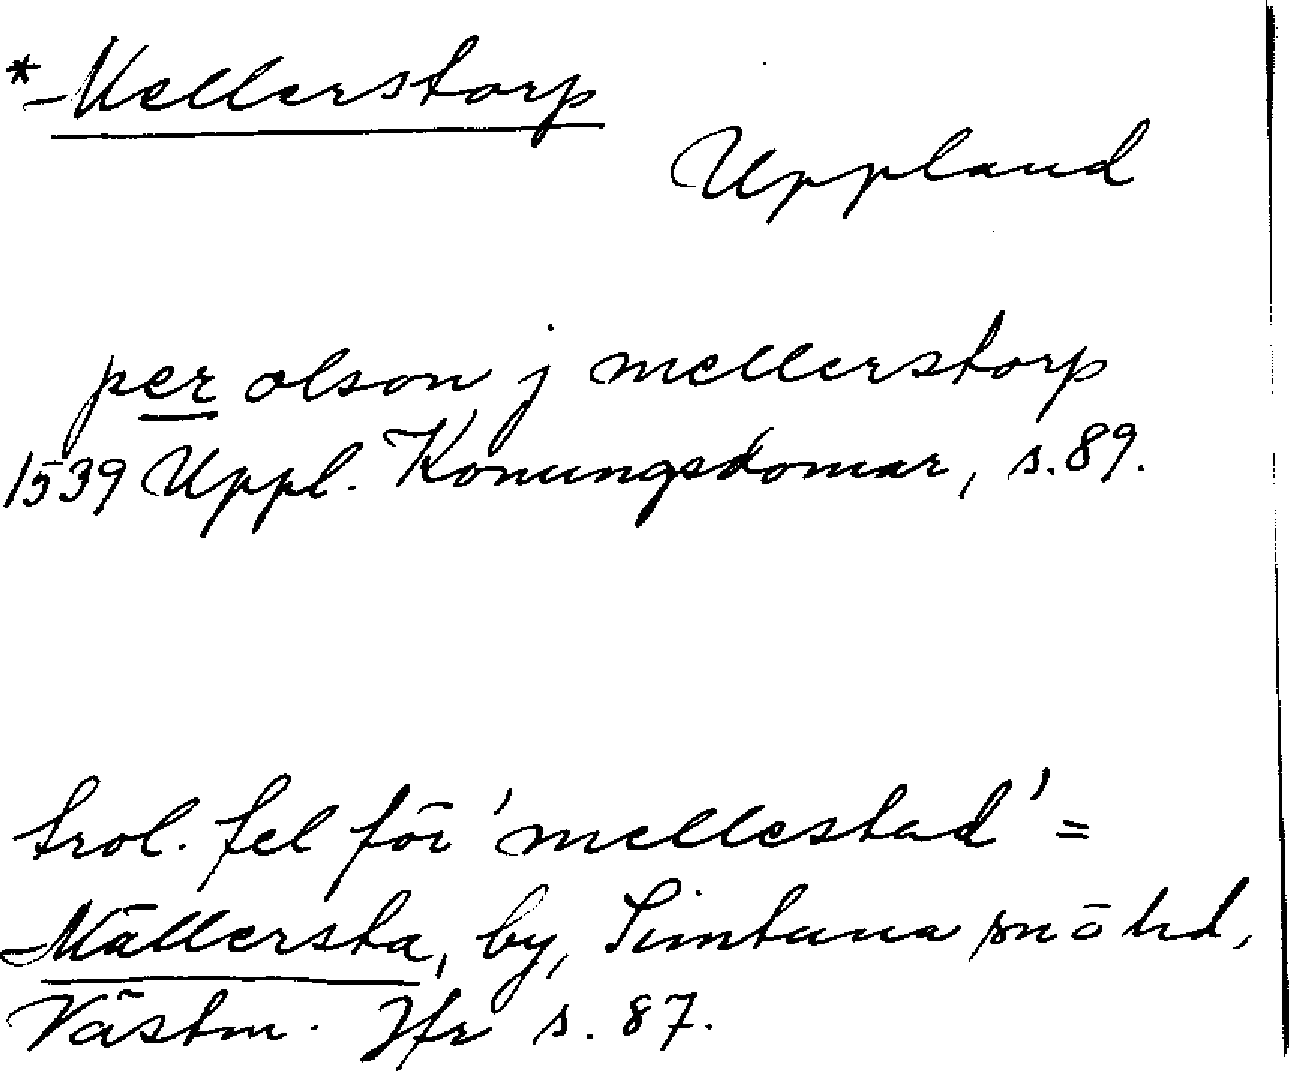 *Mellerstorp
Uppland
per olson j mellerstorp
1539 Uppl. Konungsdomar, s. 89.
trol. fel för 'mellestad' =
Mällersta, by, Simtuna sn o hd,
Västm. Jfr s. 87.